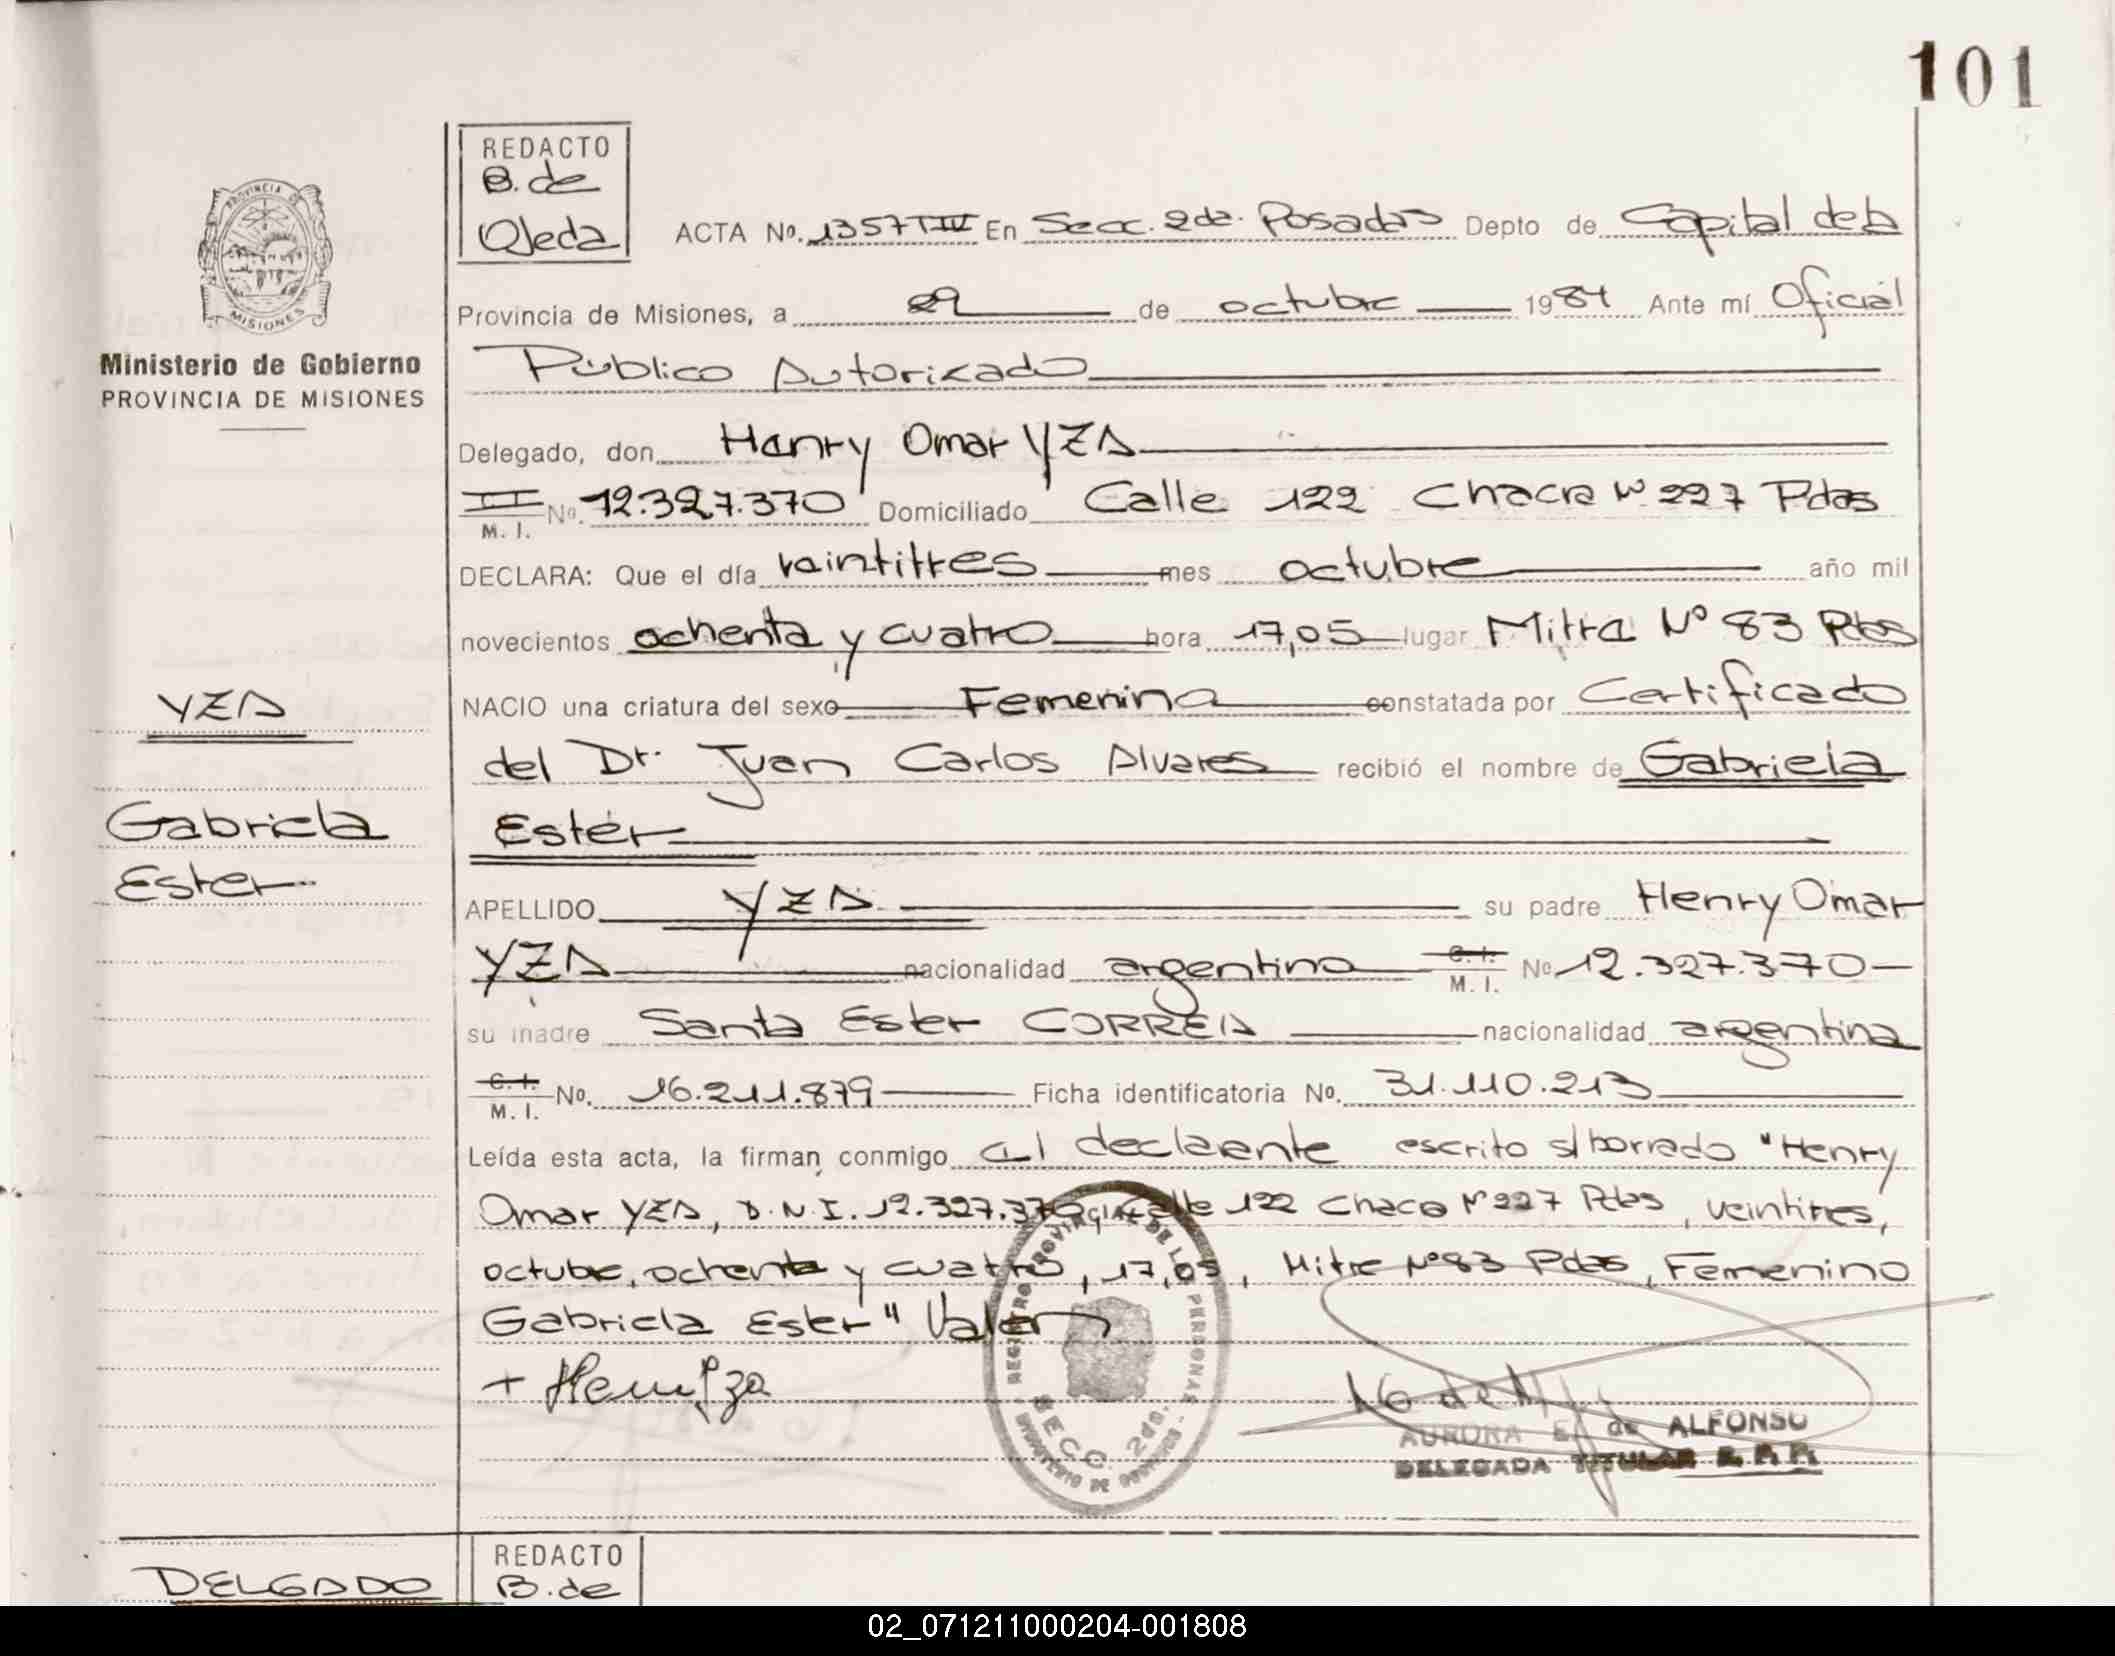 101
REDACTO
B. de
Ojeda
ACTA No. 1357 T IV En Secc. 2da. Posadas Depto de Capital de la
Provincia de Misiones, a 29 de octubre 1984 Ante mí Oficial
Público Autorizado
PROVINCIA DE
MISIONES
Ministerio de Gobierno
PROVINCIA DE MISIONES
Delegado, don Henry Omar YZA
M. I. No. 12.327.370 Domiciliado Calle 122 Chacra Nº 227 Pdas
DECLARA: Que el día veintitres mes octubre año mil
novecientos ochenta y cuatro hora 17,05 lugar Mitre Nº 83 Pdas
YZA
NACIO una criatura del sexo Femenino constatada por Certificado
del Dr. Juan Carlos Alvares recibió el nombre de Gabriela
Gabriela
Ester
Ester
APELLIDO YZA su padre Henry Omar
YZA nacionalidad argentino C. I. M. I. No 12.327.370
su madre Santa Ester CORREA nacionalidad argentina
C. I. M. I. No. 16.211.879 Ficha identificatoria No. 31.110.213
Leída esta acta, la firman conmigo el declarante escrito s/borrado "Henry
Omar YZA, D.N.I. 12.327.370, Calle 122 Chaca Nº 227 Pdas, veintitres,
octube, ochenta y cuatro, 17,05, Mitre Nº 83 Pdas, Femenino
Gabriela Ester" Valen
+ Henry Yza
REGISTRO PROVINCIAL DE LAS PERSONAS
SECC. 2da.
MINISTERIO DE GOBIERNO
AURORA E. de ALFONSO
DELEGADA TITULAR R. P. P.
DELGADO
REDACTO
B. de
02_071211000204-001808